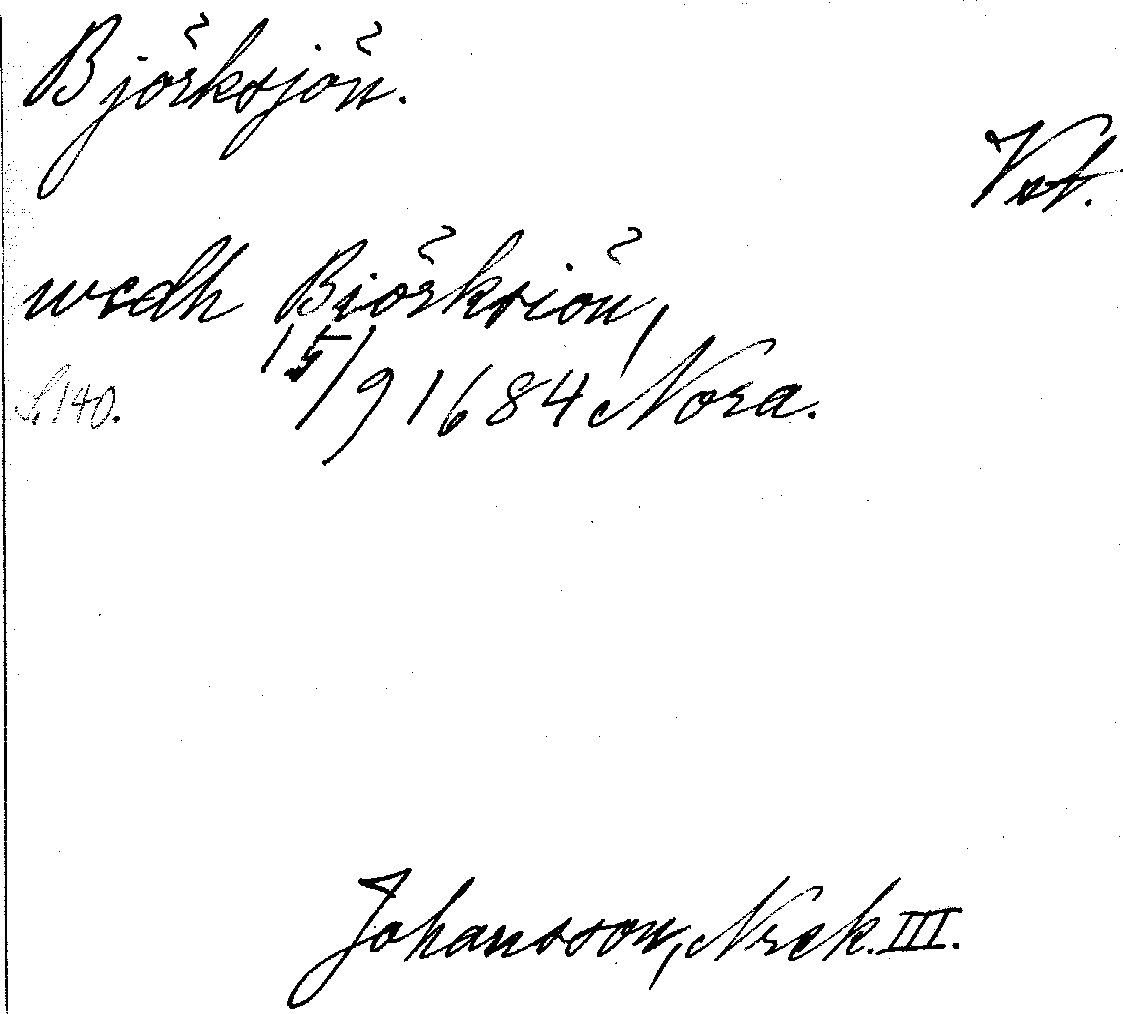 Björksjön.
Vst.
wedh Biörksiön,
15/9 1684 Nora.
S. 140.
Johansson, Nrck. III.